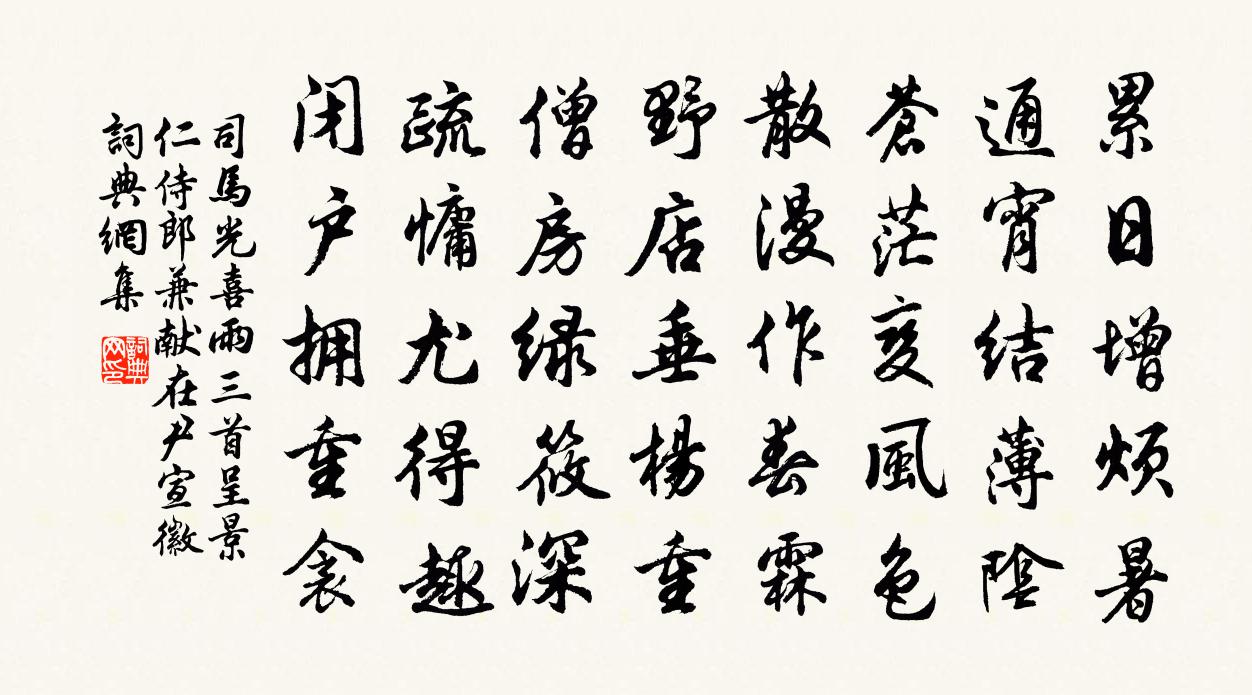 累日增煩暑
通宵結薄陰
蒼茫变風色
散漫作春霖
野店垂楊重
僧房緑筱深
疏慵尤得趣
闭户拥重衾
司馬光喜雨三首呈景
仁侍郎兼献在尹宣徽
詞典網集
詞典网印